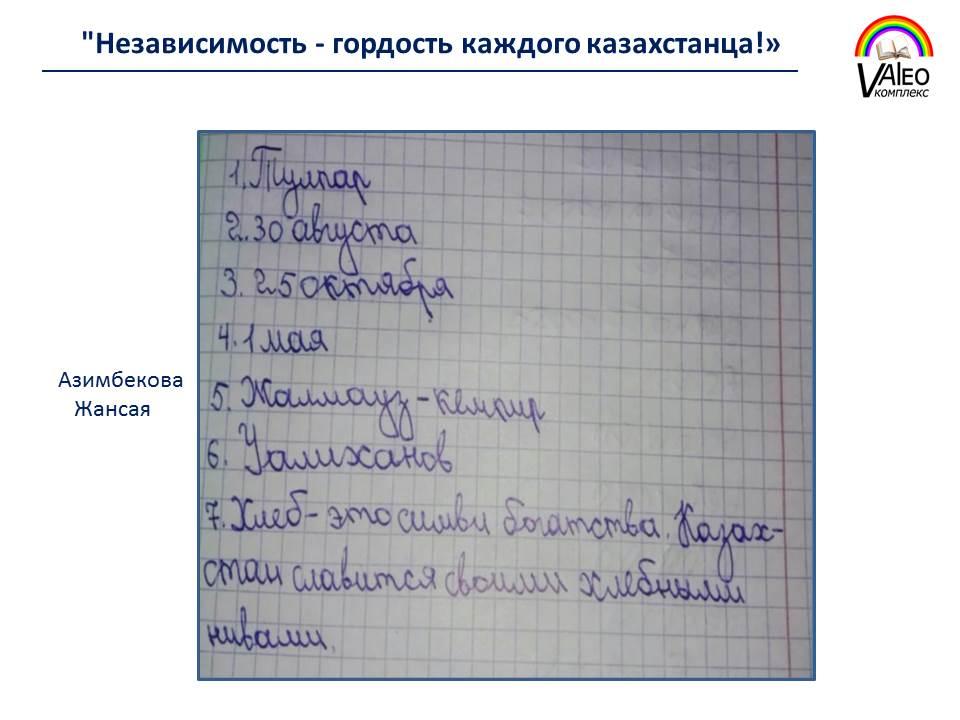 "Независимость - гордость каждого казахстанца!»
VAleo
комплекс
1. Тулпар
2. 30 августа
3. 25 октября
4. 1 мая
Азимбекова
Жансая
5. Жалмауз-кемпир
6. Уалиханов
7. Хлеб- это симви богатства. Казах-
стан славится своими хлебными
нивами.